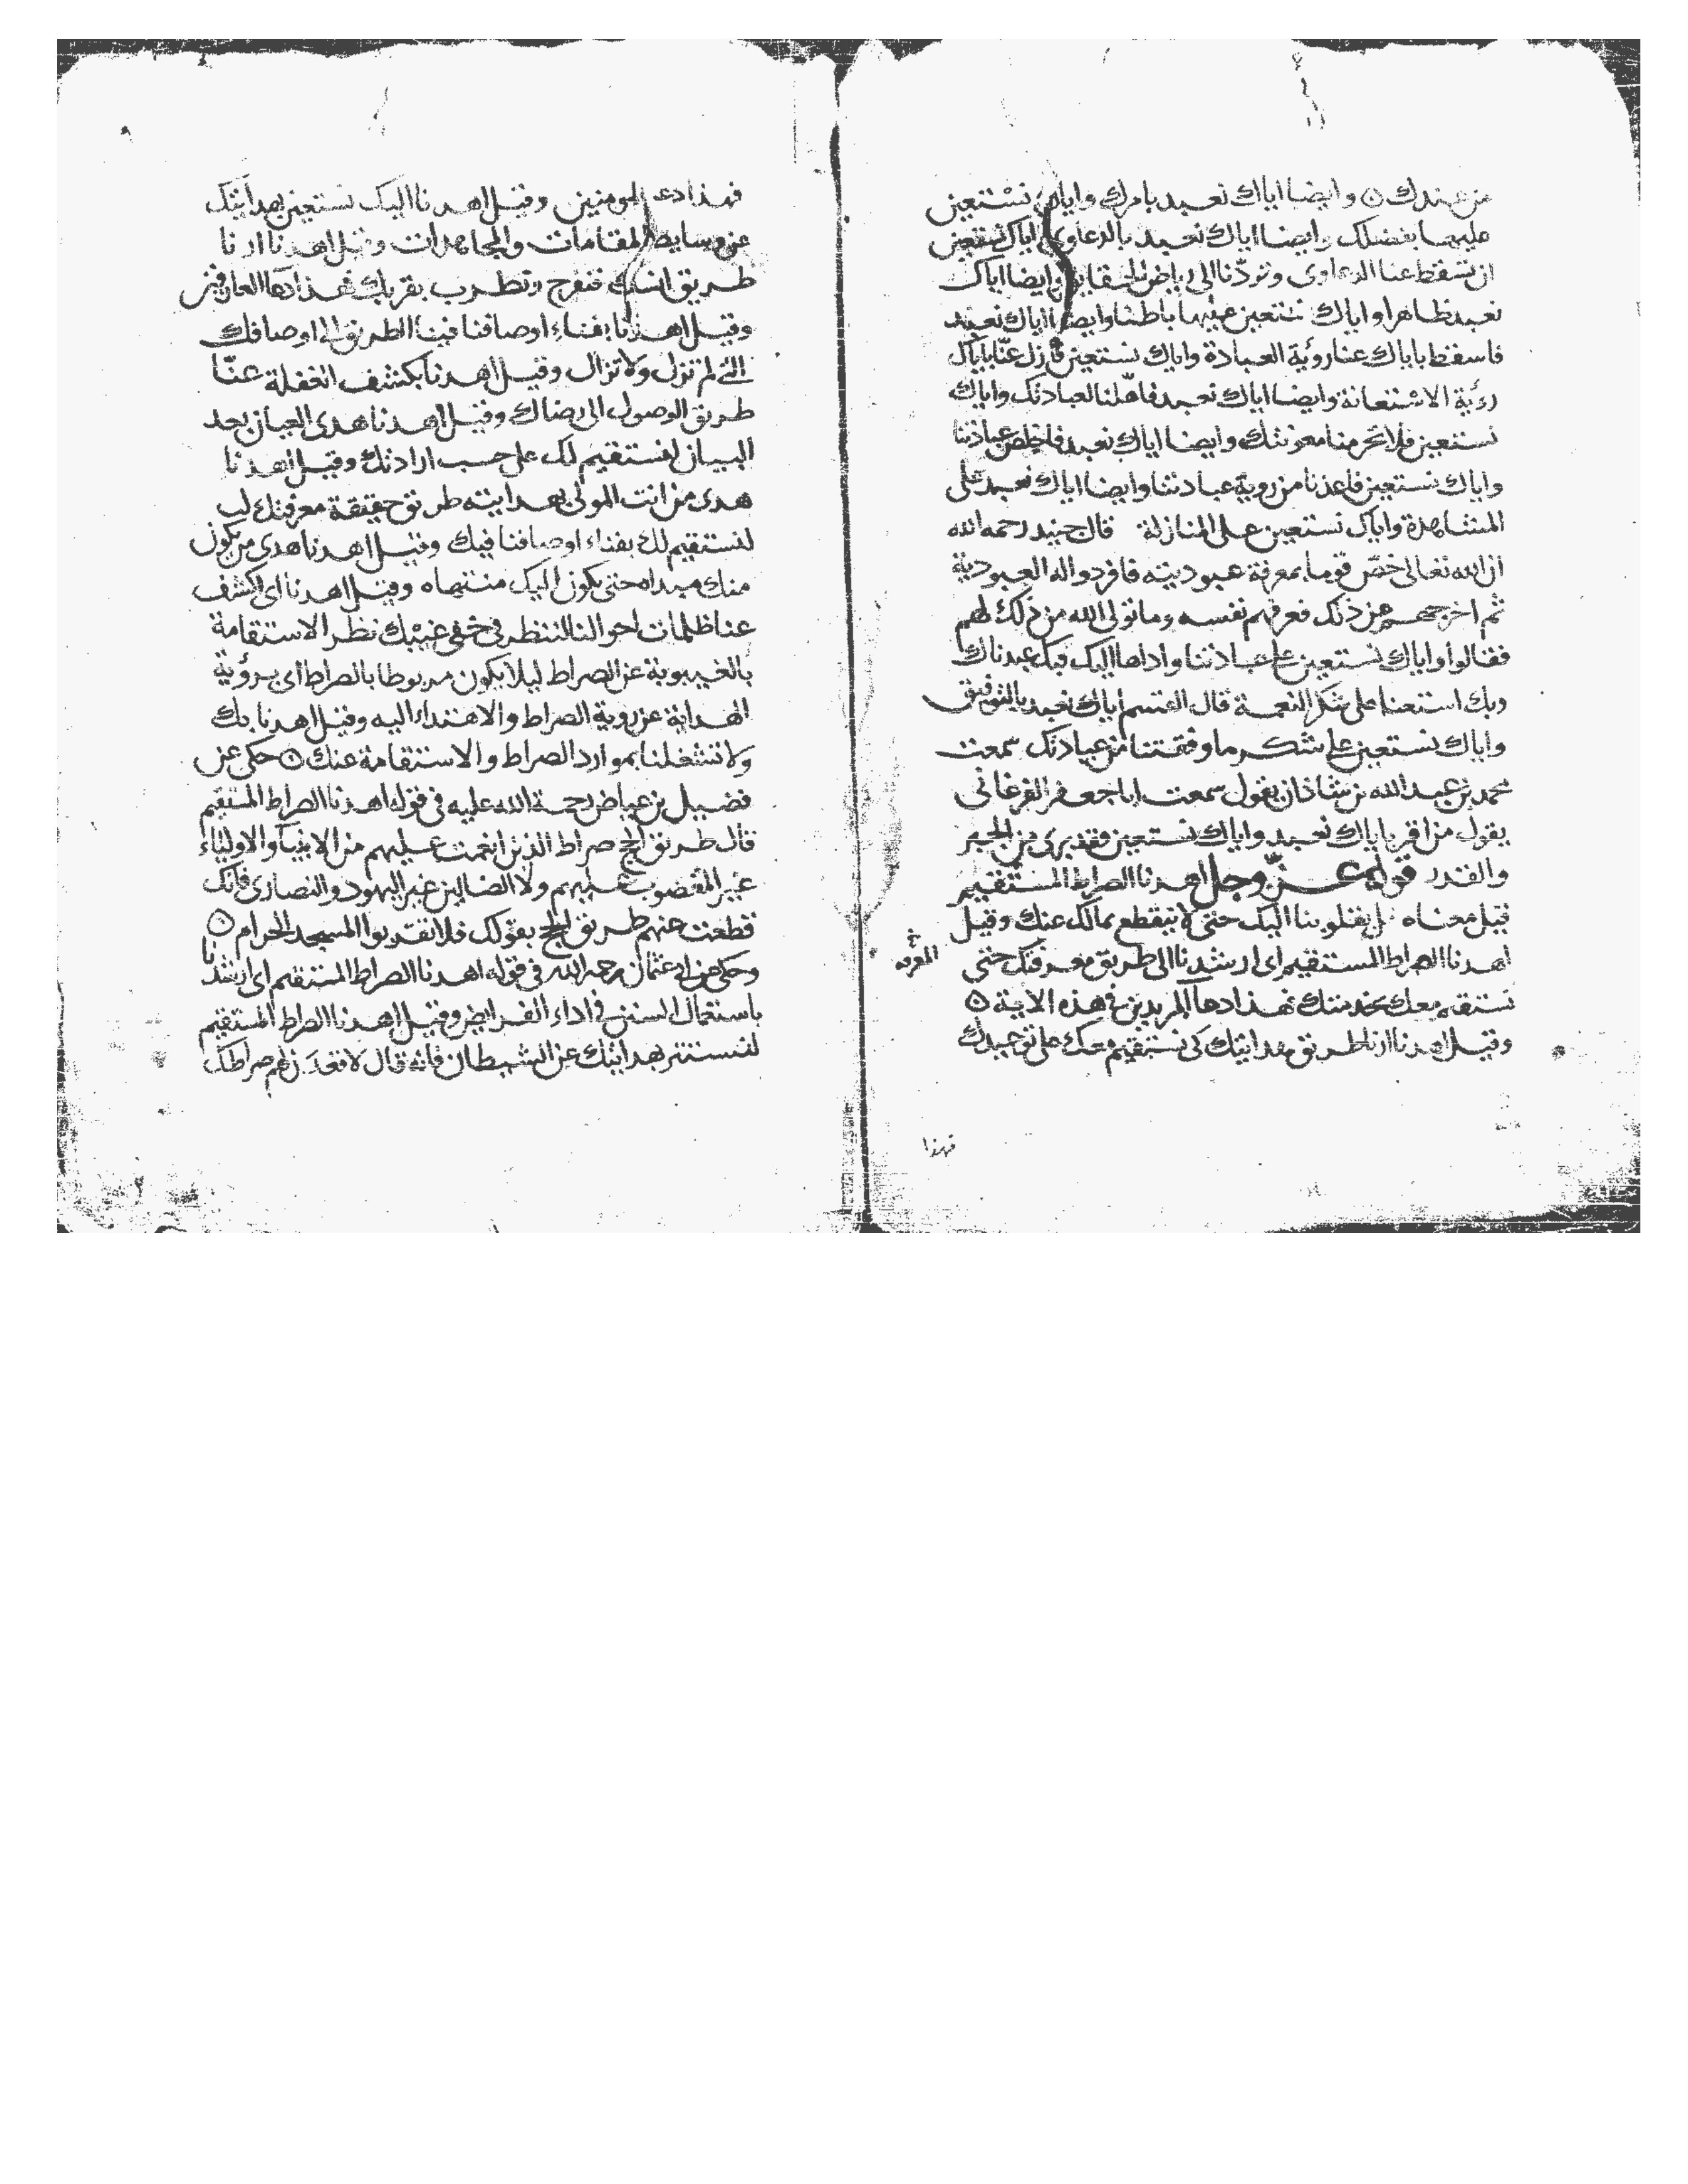 من عندك ۞ وايضا اياك نعبد بامرك واياك نستعين
عليهما بفضلك وايضا اياك نعبد بالدعاوى اياك نستعين
ان تسقط عنا الدعاوى وتردنا الى رياض الحقايق وايضا اياك
نعبد ظاهرا واياك نستعين عليهما باطنا وايضا اياك نعبد
فاسقط باياك عنا روية العبادة واياك نستعين فازل عنا باياك
رؤية الاستعانة وايضا اياك نعبد فاهلنا لعبادتك واياك
نستعين فلا تحرمنا معونتك وايضا اياك نعبد فاخلص عبادتنا
واياك نستعين فاعذنا من روية عبادتنا وايضا اياك نعبد على
المشاهدة واياك نستعين على المنازلة قال جنيد رحمه الله
ان الله تعالى خصّ قوما بمعرفة عبوديته فافردوا له العبودية
ثم اخرجهم عن ذلك فعرفهم نفسه وما تولى الله من ذلك لهم
فقالوا واياك نستعين على عبادتنا واداها اليك فبك عبدناك
وبك استعنا على شكر النعمة قال القسم اياك نعبد بالتوفيق
واياك نستعين على شكر ما وفقتنا من عبادتك سمعت
محمد بن عبد الله بن شاذان يقول سمعت ابا جعفر الفرغاني
يقول من اقر باياك نعبد واياك نستعين فقد برى من الجبر
والقدر قوله عزّ وجل اهدنا الصراط المستقيم
قيل معناه مل بقلوبنا اليك حتى لا ينقطع بمالك عنك وقيل
اهدنا الصراط المستقيم اى ارشدنا الى طريق معرفتك حتى
المعرفه
نستقيم معك بخدمتك فهذا دعا المريدين فى هذه الاية ۞
وقيل اهدنا ارنا طريق هدايتك كى نستقيم معك على توحيدك
فهذا
فهذا دعا المومنين وقيل اهدنا اليك نستعين بهدايتك
عن وسايط المقامات والمجاهدات وقيل اهدنا ارنا
طريق انسك فنفرح ونطرب بقربك فهذا دعا العارفين
وقيل اهدنا بفناء اوصافنا فينا الطريق الى اوصافك
التى لم تزل ولا تزال وقيل اهدنا بكشف الغفلة عنّا
طريق الوصول الى رضاك وقيل اهدنا هدى العيان بعد
البيان لنستقيم لك على حسب ارادتك وقيل اهدنا
هدى من انت المولى بهدايته طريق حقيقة معرفتك لـ
لنستقيم لك بفناء اوصافنا فيك وقيل اهدنا هدى من يكون
منك مبداه حتى يكون اليك منتهاه وقيل اهدنا اى اكشف
عنا ظلمات احوالنا لننظر فى خفى غيبك نظر الاستقامة
بالغيبوبة عن الصراط ليلا يكون مربوطا بالصراط اى برؤية
الهداية عن روية الصراط والاهتداء اليه وقيل اهدنا بك
ولا تشغلنا بموارد الصراط والاستقامة عنك ۞ حكى عن
فضيل بن عياض رحمة الله عليه فى قوله اهدنا الصراط المستقيم
قال طريق الحج صراط الذين انعمت عليهم من الانبيآ والاولياء
غير المغضوب عليهم ولا الضالين غير اليهود والنصارى فانك
قطعت عنهم طريق الحج بقولك فلا يقربوا المسجد الحرام ۞
وحكى عن ابى عثمان رحمه الله فى قوله اهدنا الصراط المستقيم اى ارشدنا
باستعمال السنن فى اداء الفرايض وقيل اهدنا الصراط المستقيم
لنستتر بهدايتك عن الشيطان فانه قال لاقعدن لهم صراطك